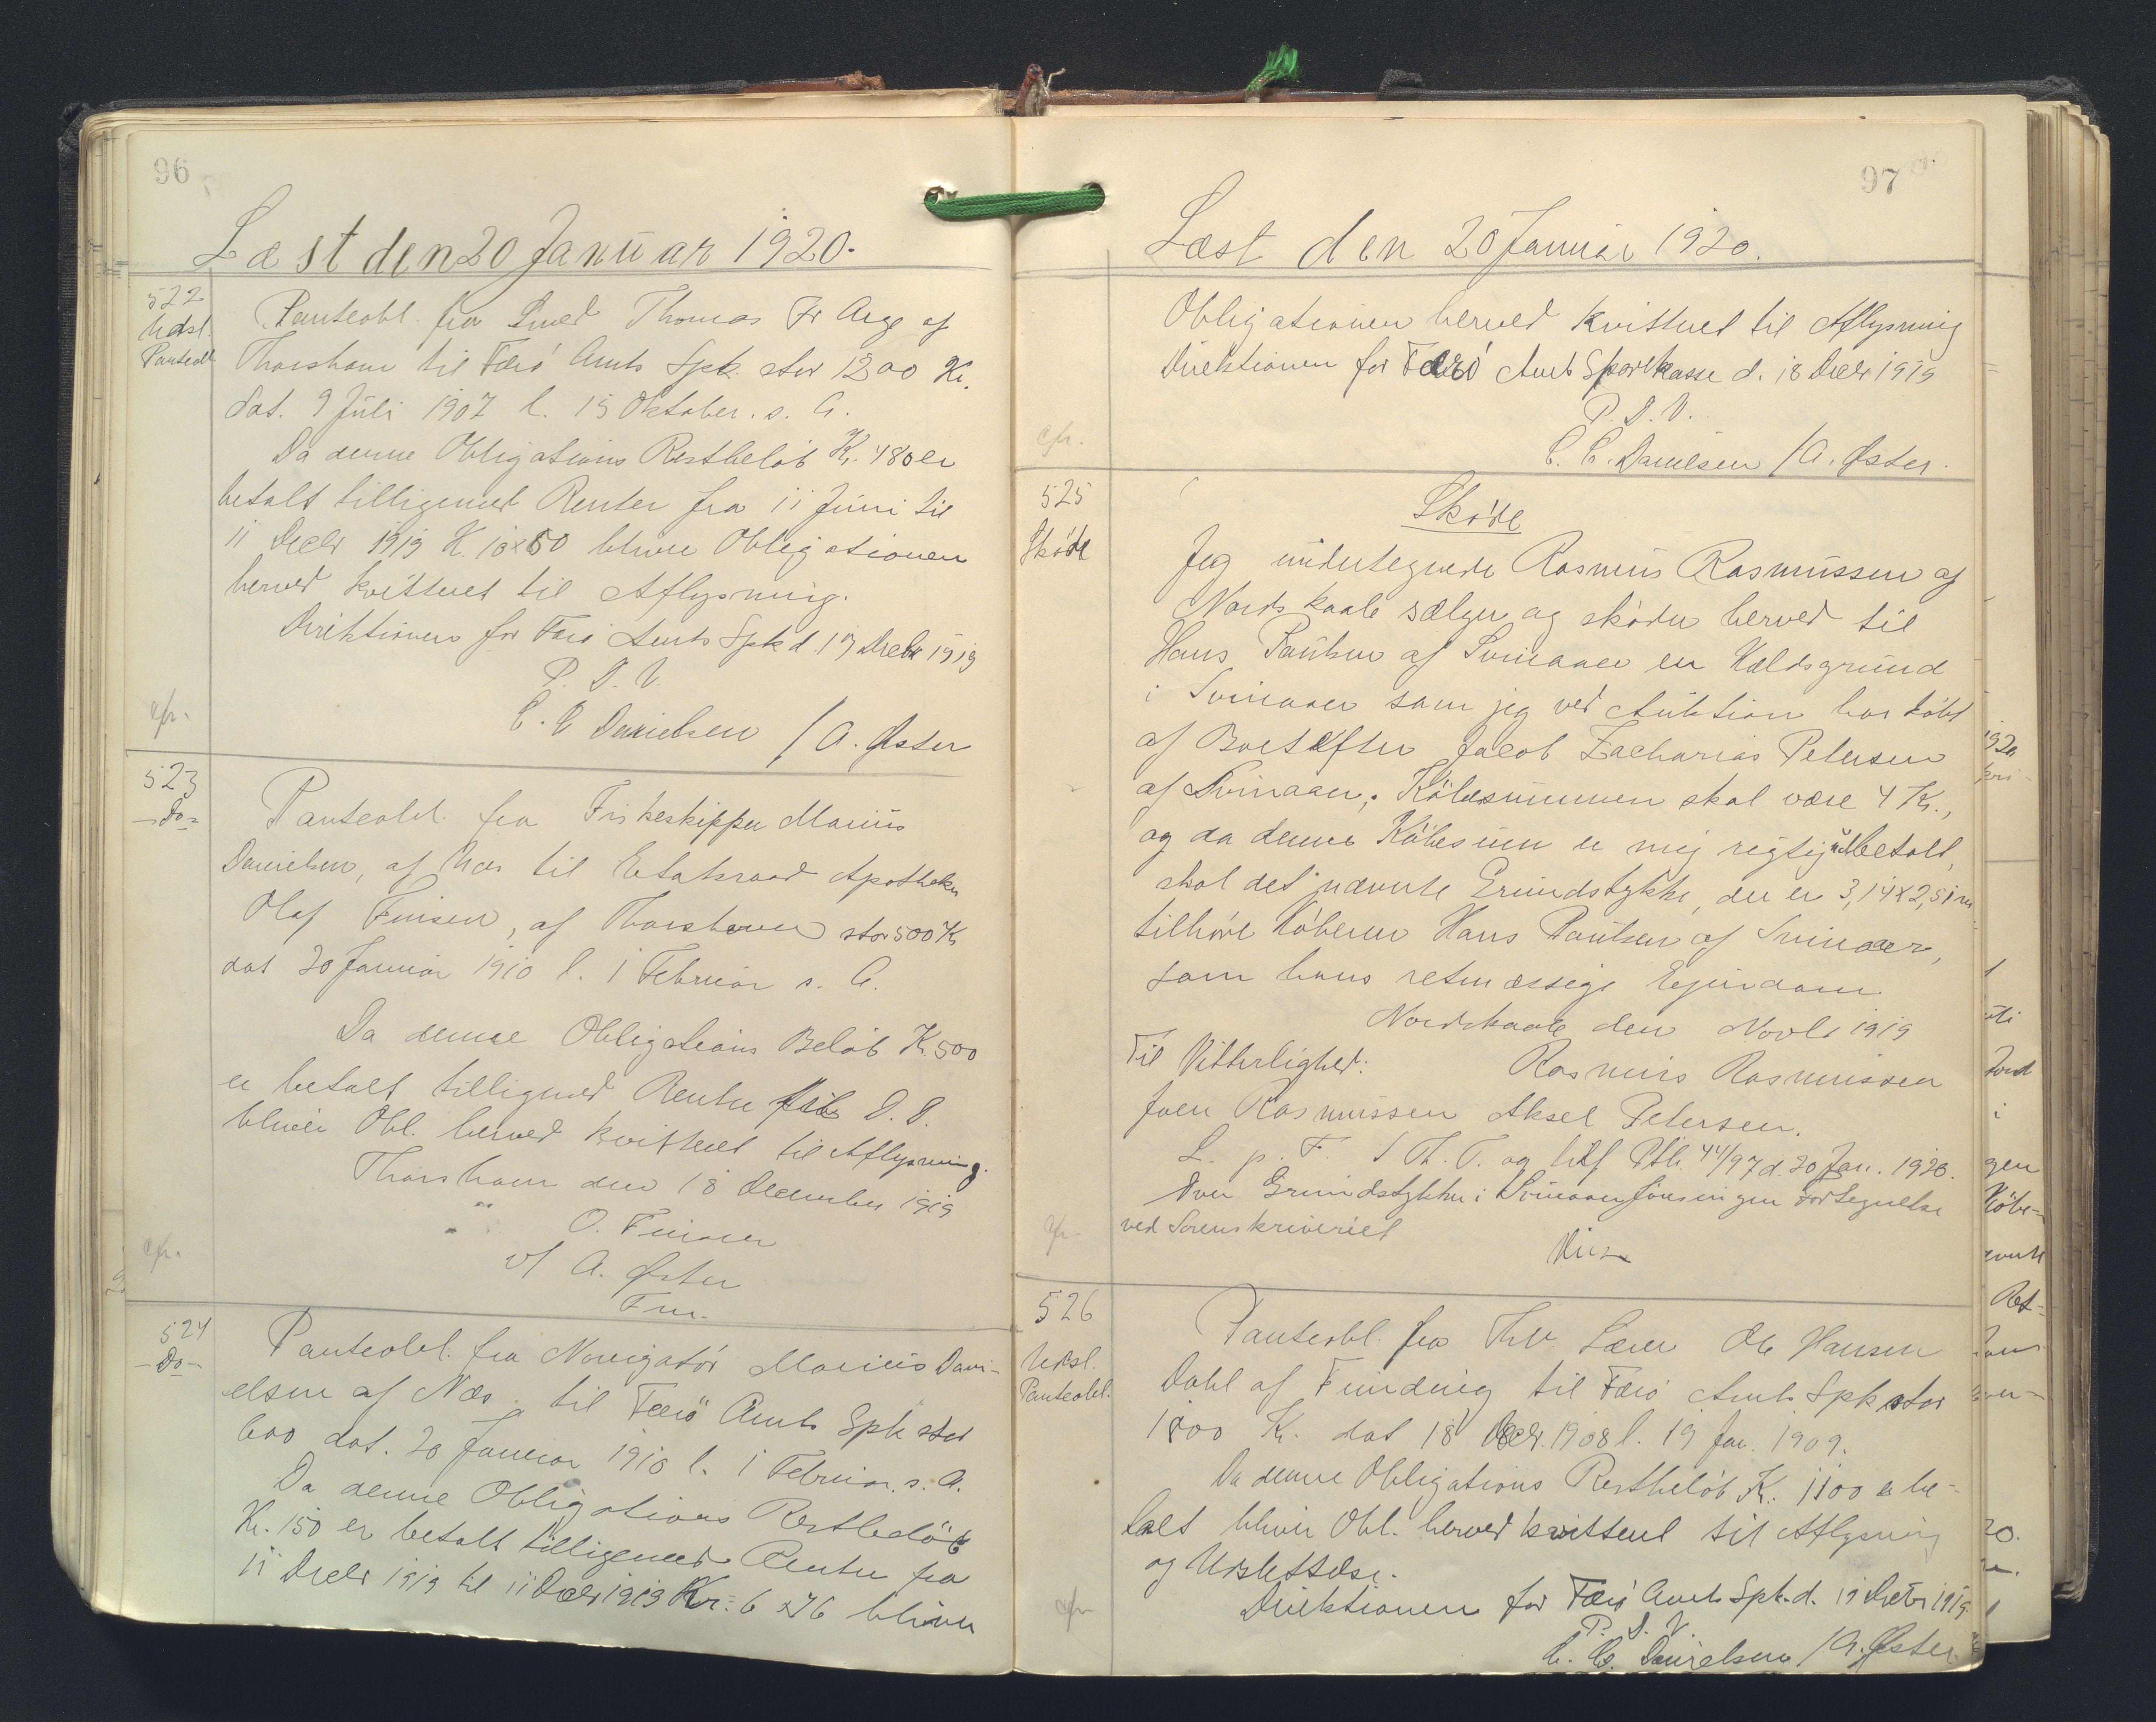 96
Læst den 20 Januar 1920.
522
Udsl.
Panteobl.
Panteobl. fra Smed Thomas Fr Arge af
Thorshavn til Færø Amts Spk. stor 1200 Kr.
dat. 9 Juli 1907 l. 15 Oktober. s. A.
Da denne Obligations Restbeløb Kr. 480 er
betalt tilligemed Renter fra 11 Juni til
11 Decbr 1919 K. 10x80 bliver Obligationen
herved kvitteret til Aflysning.
Direktionen for Færø Amts Spk d. 19 Decbr 1919
P. D. V.
C. C Danielsen / A. Øster
cfr.
523
-Do-
Panteobl. fra Fiskeskipper Marius
Danielsen, af Næs til Etatsraad Apotheker
Olaf Finsen, af Thorshavn stor 500 Kr
dat 20 Januar 1910 l. 1 Februar s. A.
Da denne Obligations Beløb K. 500
er betalt tilligemed Renter D. D.
bliver Obl. herved kvitteret til Aflysning.
Thorshavn den 18 December 1919
O. Finsen
v/ A. Øster
Fm.
cfr.
524
-Do-
Panteobl. fra Navigatør Marius Dani-
elsen af Næs til Færø Amts Spk stor
600 dat. 20 Januar 1910 l. 1 Februar. s. A.
Da denne Obligations Restbeløb
Kr. 150 er betalt tilligemed Renter fra
11 Decbr 1919 til 11 Decbr 1919 Kr. 6x76 bliver
97
Læst den 20 Januar 1920.
Obligationen herved kvitteret til Aflysning
Direktionen for Færø Amts Sparekasse d. 18 Decbr 1919
P. D. V.
C. C. Danielsen / A. Øster.
cfr.
525
Skøde
Skøde
Jeg undertegnede Rasmus Rasmussen af
Nordskaale sælger og skøder herved til
Hans Paulsen af Svinaaer en Kældsgrund
i Svinaaer som jeg ved Auktion har købt
af Boet efter Jacob Zacharias Petersen
af Svinaaer. Købesummen skal være 4 Kr.,
og da denne Købesum er mig rigtig udbetalt,
skal det nævnte Grundstykke, der er 3,14x2,51 m.
tilhøre Køberen Hans Paulsen af Svinaaer,
som hans retmæssige Ejendom
Nordskaale den Novbr 1919
Til Vitterlighed: Rasmus Rasmussen
Joen Rasmussen Aksel Petersen.
L. p. F. S Th. T. og Ptb. 44/97 d. 20 Jan. 1920.
Over Grundstykker i Svinaaer fortegnelse
ved Sorenskriveriet
cfr.
526
Udsl.
Panteobl.
Panteobl. fra Fhv. Lærer Ole Hansen
Dahl af Funding til Færø Amts Spk stor
1800 Kr. dat 18 Decbr. 1908 l. 19 Jan. 1909.
Da denne Obligations Restbeløb K. 1100 er be-
talt bliver Obl. herved kvitteret til Aflysning
og Udslettelse.
Direktionen for Færø Amts Spk. d. 19 Decbr 1919
P. D. V.
C. C. Danielsen / A. Øster
cfr